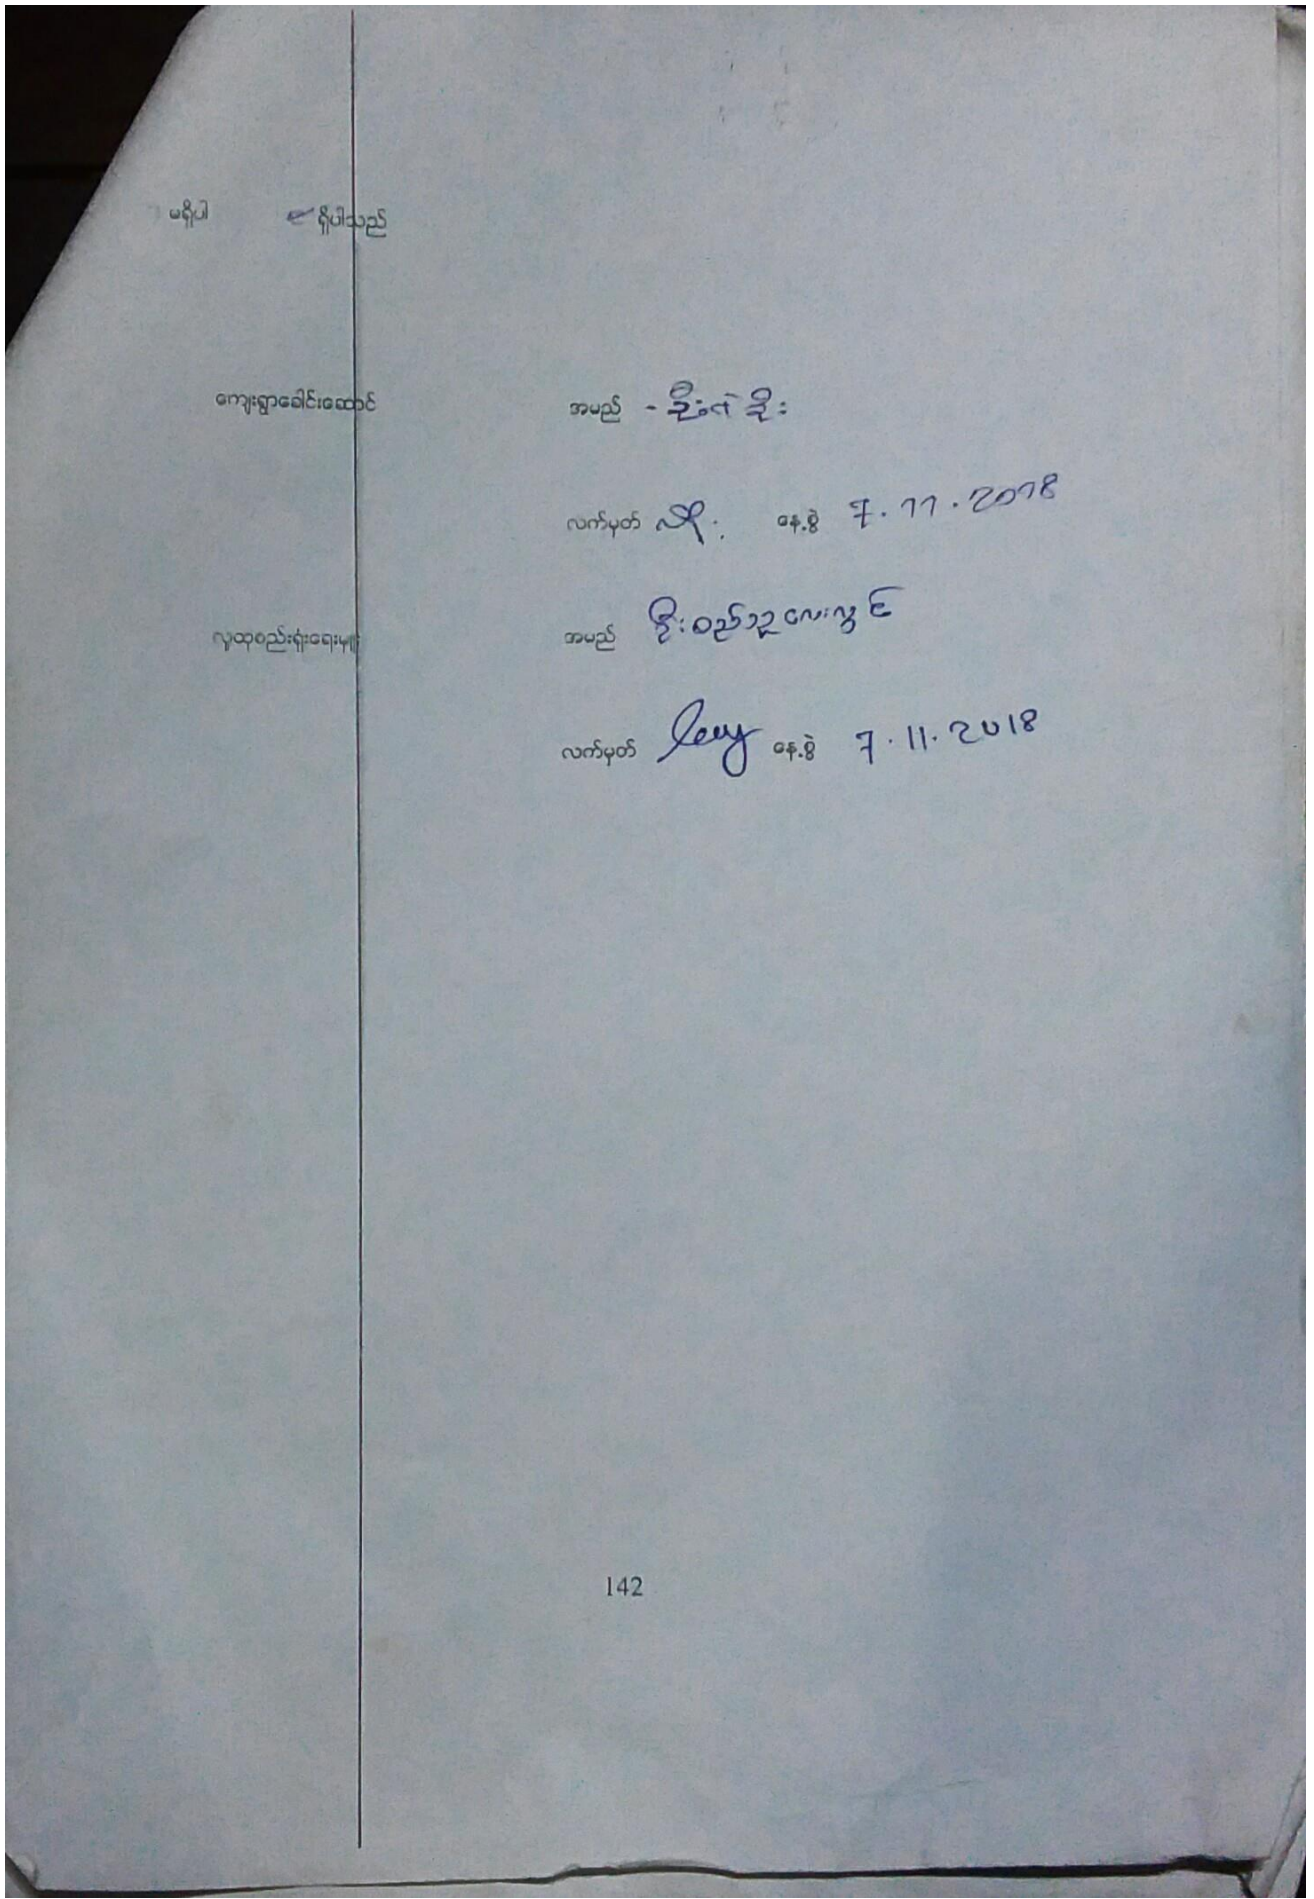 မရှိပါ ရှိပါသည်
ကျေးရွာခေါင်းဆောင် အမည် -
လက်မှတ် နေ့စွဲ 7.11.2018
လူထုစည်းရုံးရေးမှူး အမည်
လက်မှတ် နေ့စွဲ 7.11.2018
142